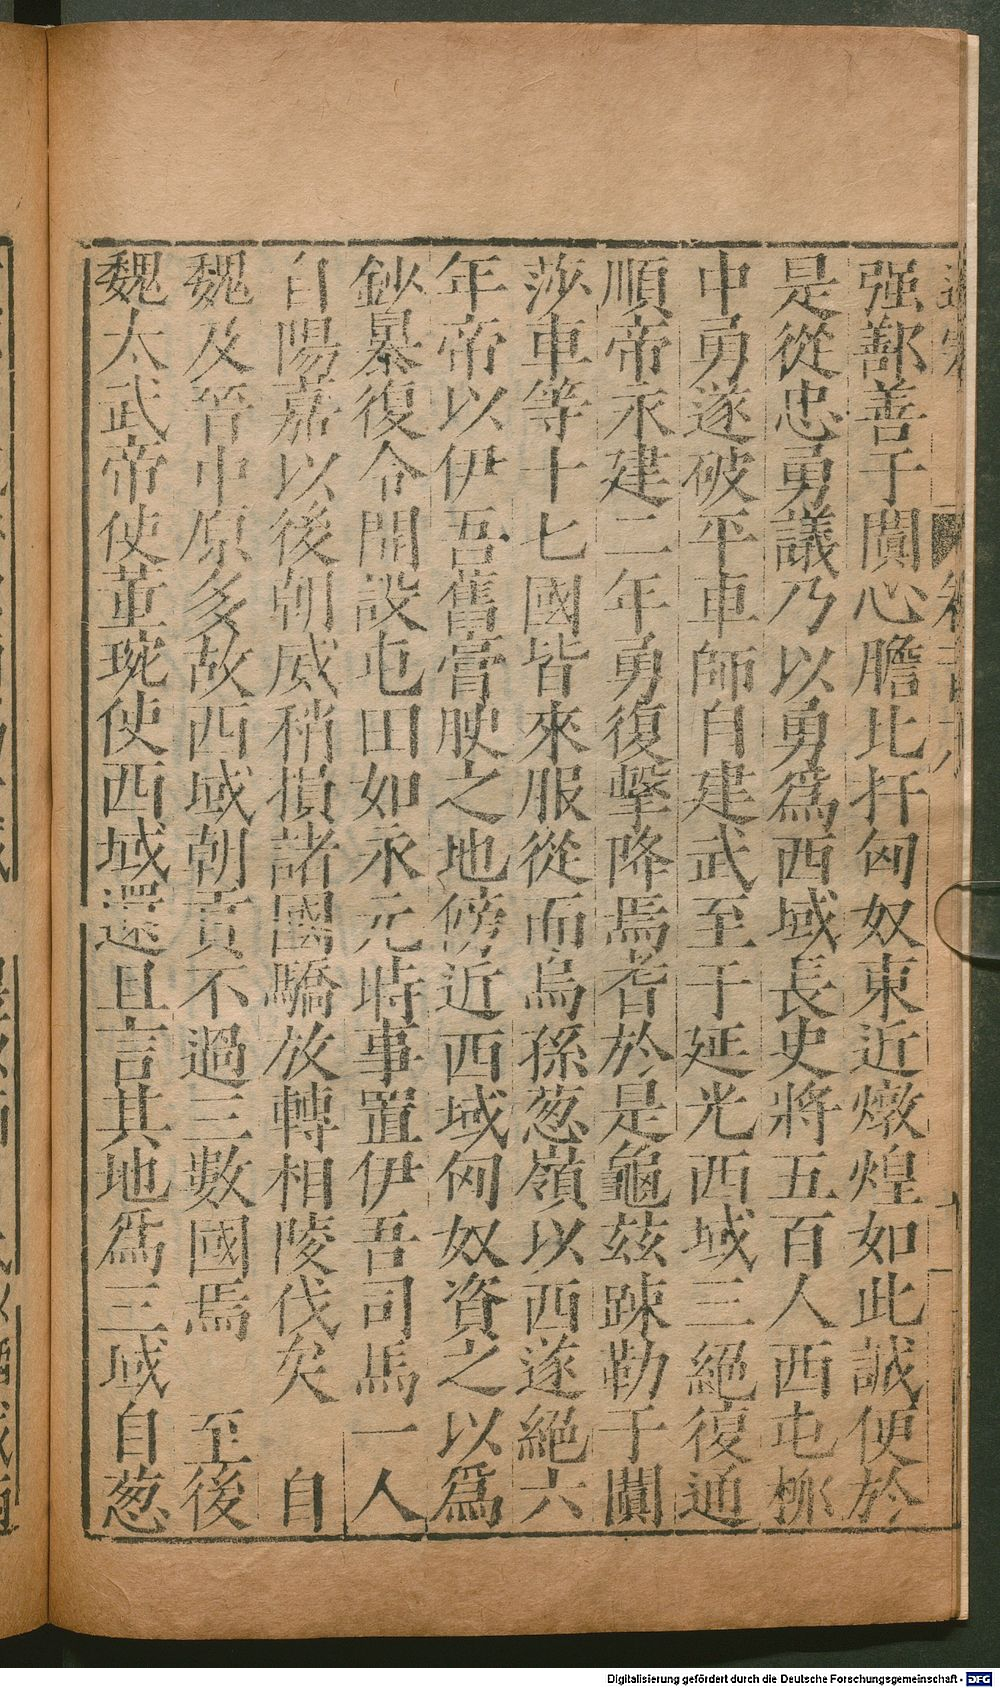 强鄯善于闐心膽北扞匈奴東近燉煌如此誠便於
是從忠勇議乃以勇爲西域長史將五百人西屯柳
中勇遂破平車師自建武至于延光西域三絕復通
順帝永建二年勇復擊降焉耆於是龜茲踈勒于闐
莎車等十七國皆來服從而烏孫葱嶺以西遂絕六
年帝以伊吾舊膏腴之地傍近西域匈奴資之以爲
鈔暴復令開設屯田如永元時事置伊吾司馬一人
自陽嘉以後朝威稍損諸國驕放轉相陵伐矣　自
魏及晉中原多故西域朝貢不過三數國焉　至後
魏太武帝使董琬使西域還且言其地爲三域自葱
Digitalisierung gefördert durch die Deutsche Forschungsgemeinschaft - DFG